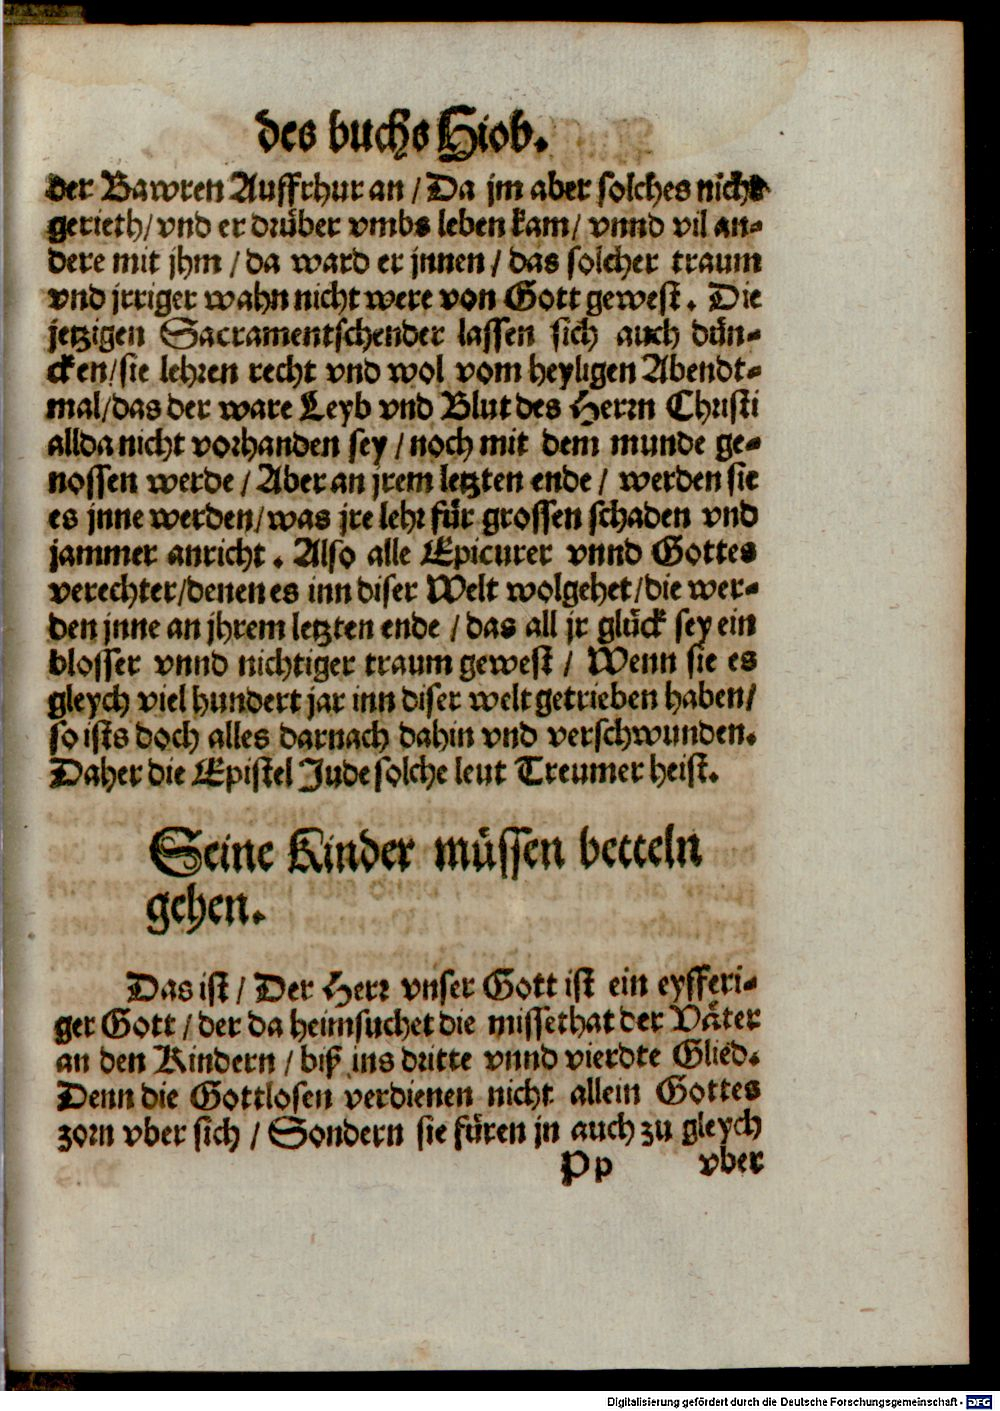 des buchs Hiob.
der Bawren Auffrhur an / Da jm aber solches nicht
gerieth/ vnd er drüber vmbs leben kam/ vnnd vil an-
dere mit jhm / da ward er jnnen / das solcher traum
vnd jrriger wahn nicht were von Gott gewest. Die
jetzigen Sacramentschender lassen sich auch dün-
cken/sie lehren recht vnd wol vom heyligen Abendt-
mal/das der ware Leyb vnd Blut des Herrn Christi
allda nicht vorhanden sey / noch mit dem munde ge-
nossen werde / Aber an jrem letzten ende / werden sie
es jnne werden/ was jre lehr für grossen schaden vnd
jammer anricht. Also alle Epicurer vnnd Gottes
verechter/denen es inn diser Welt wolgehet/die wer-
den jnne an jhrem letzten ende / das all jr glück sey ein
blosser vnnd nichtiger traum gewest / Wenn sie es
gleych viel hundert jar inn diser welt getrieben haben/
so ists doch alles darnach dahin vnd verschwunden.
Daher die Epistel Jude solche leut Treumer heist.
Seine Kinder müssen betteln
gehen.
Das ist / Der Herr vnser Gott ist ein eyfferi-
ger Gott / der da heimsuchet die missethat der Väter
an den Kindern / biß ins dritte vnnd vierdte Glied.
Denn die Gottlosen verdienen nicht allein Gottes
zorn vber sich / Sondern sie füren jn auch zu gleych
Pp vber
Digitalisierung gefördert durch die Deutsche Forschungsgemeinschaft - DFG